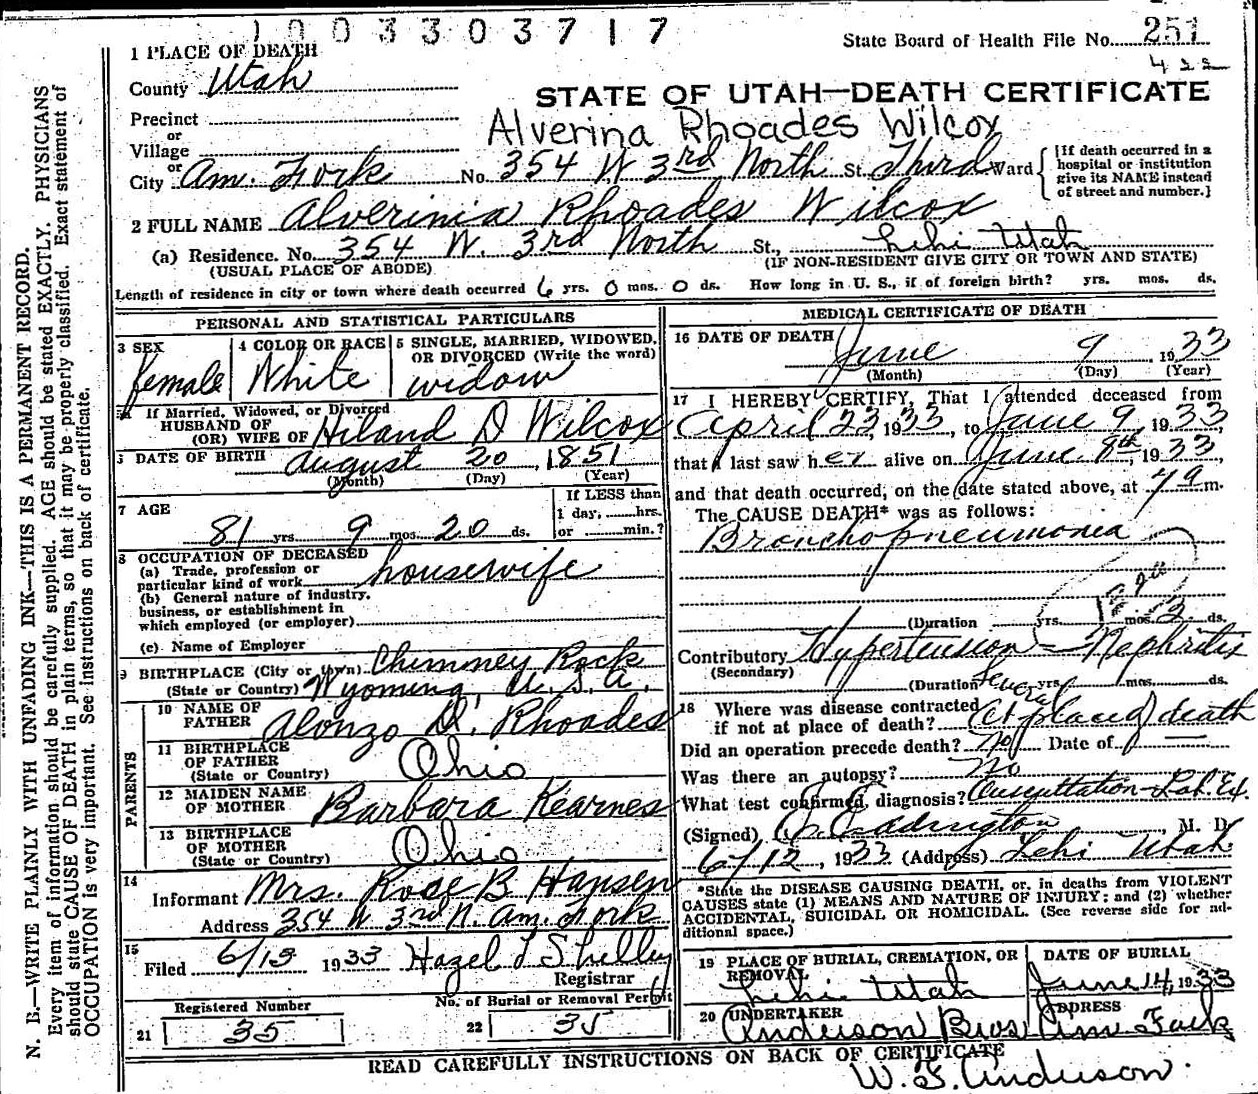 1003303717
State Board of Health File No. 251
422
1 PLACE OF DEATH
County Utah
STATE OF UTAH—DEATH CERTIFICATE
Precinct
or
Village
Alverina Rhoades Wilcox
or
City Am. Fork No. 354 W 3rd North St. Third Ward
[If death occurred in a hospital or institution give its NAME instead of street and number.]
2 FULL NAME Alverinia Rhoades Wilcox
(a) Residence. No. 354 W. 3rd North St., Lehi Utah
(USUAL PLACE OF ABODE) (IF NON-RESIDENT GIVE CITY OR TOWN AND STATE)
Length of residence in city or town where death occurred 6 yrs. 0 mos. 0 ds. How long in U. S., if of foreign birth? yrs. mos. ds.
PERSONAL AND STATISTICAL PARTICULARS
3 SEX female
4 COLOR OR RACE White
5 SINGLE, MARRIED, WIDOWED, OR DIVORCED (Write the word) widow
5a If Married, Widowed, or Divorced
HUSBAND OF
(OR) WIFE OF Hiland D Wilcox
DATE OF BIRTH August 20, 1851
(Month) (Day) (Year)
7 AGE 81 yrs. 9 mos. 20 ds.
If LESS than 1 day, hrs. or min.?
8 OCCUPATION OF DECEASED
(a) Trade, profession or particular kind of work housewife
(b) General nature of industry, business, or establishment in which employed (or employer)
(c) Name of Employer
9 BIRTHPLACE (City or town) Chimney Rock
(State or Country) Wyoming, U. S. A.
PARENTS
10 NAME OF FATHER Alonzo D. Rhoades
11 BIRTHPLACE OF FATHER (State or Country) Ohio
12 MAIDEN NAME OF MOTHER Barbara Kearnes
13 BIRTHPLACE OF MOTHER (State or Country) Ohio
14
Informant Mrs. Rose B Hansen
Address 354 W 3rd N. Am. Fork
15
Filed 6/13 1933 Hazel L Shelley
Registrar
Registered Number
21 35
No. of Burial or Removal Permit
22 35
MEDICAL CERTIFICATE OF DEATH
16 DATE OF DEATH June 9, 1933
(Month) (Day) (Year)
17 I HEREBY CERTIFY, That I attended deceased from
April 23, 1933, to June 9, 1933,
that I last saw her alive on June 8th, 1933,
and that death occurred, on the date stated above, at 7 a m.
The CAUSE DEATH* was as follows:
Bronchopneumonia
(Duration yrs. mos. ds.
Contributory Hypertension - Nephritis
(Secondary)
(Duration Several yrs. mos. ds.
18 Where was disease contracted
if not at place of death? At place of death
Did an operation precede death? No Date of —
Was there an autopsy? No
What test confirmed diagnosis? Auscultation - Lab. Ex.
(Signed) Eddington M. D.
6/12, 1933 (Address) Lehi Utah
*State the DISEASE CAUSING DEATH, or, in deaths from VIOLENT
CAUSES state (1) MEANS AND NATURE OF INJURY; and (2) whether
ACCIDENTAL, SUICIDAL OR HOMICIDAL. (See reverse side for additional space.)
19 PLACE OF BURIAL, CREMATION, OR REMOVAL Lehi Utah
DATE OF BURIAL June 14, 1933
20 UNDERTAKER Anderson Bros
ADDRESS Am Fork
READ CAREFULLY INSTRUCTIONS ON BACK OF CERTIFICATE
W. F. Anderson.
N. B.—WRITE PLAINLY WITH UNFADING INK—THIS IS A PERMANENT RECORD.
Every item of information should be carefully supplied. AGE should be stated EXACTLY. PHYSICIANS
should state CAUSE OF DEATH in plain terms, so that it may be properly classified. Exact statement of
OCCUPATION is very important. See instructions on back of certificate.